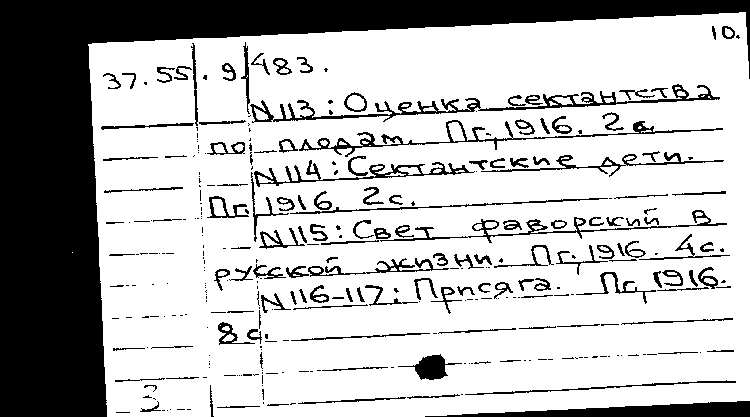 10.
37.55.9.483.
N113: Оценка сектантства
по плодам. Пг., 1916. 2с.
N114: Сектантские дети.
Пг. 1916. 2с.
N115: Свет фаворский в
русской жизни. Пг., 1916. 4с.
N116-117: Присяга. Пг., 1916.
8с.
3